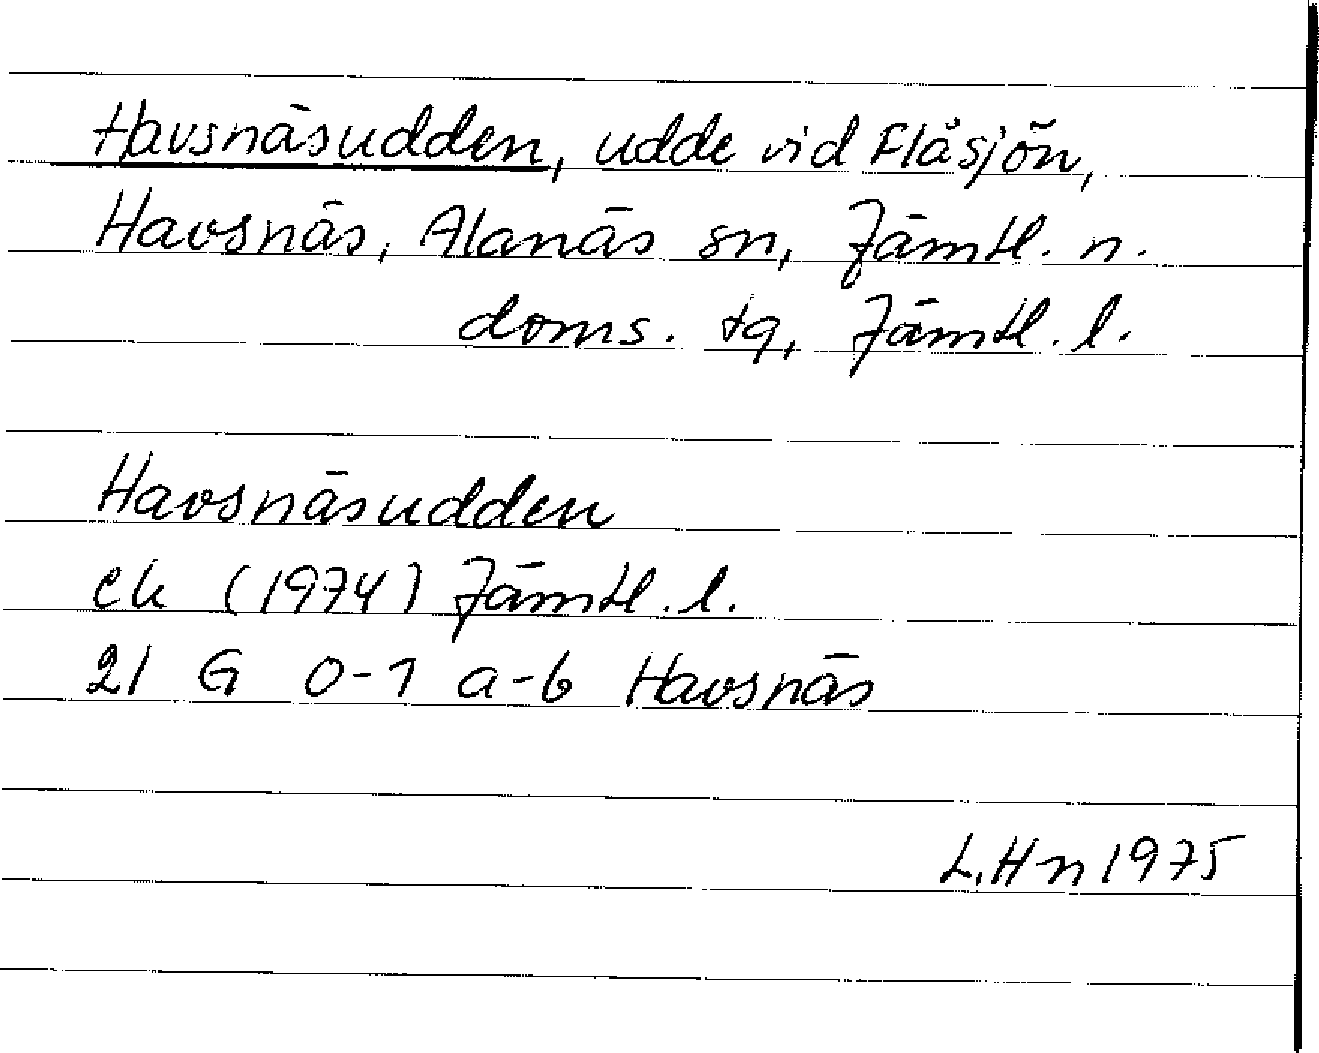 Havsnäsudden, udde vid Flåsjön,
Havsnäs, Alanäs sn, Jämtl. n.
doms. tg, Jämtl. l.
Havsnäsudden
ek (1974) Jämtl. l.
21 G 0-1 a-b Havsnäs
L.Hn 1975